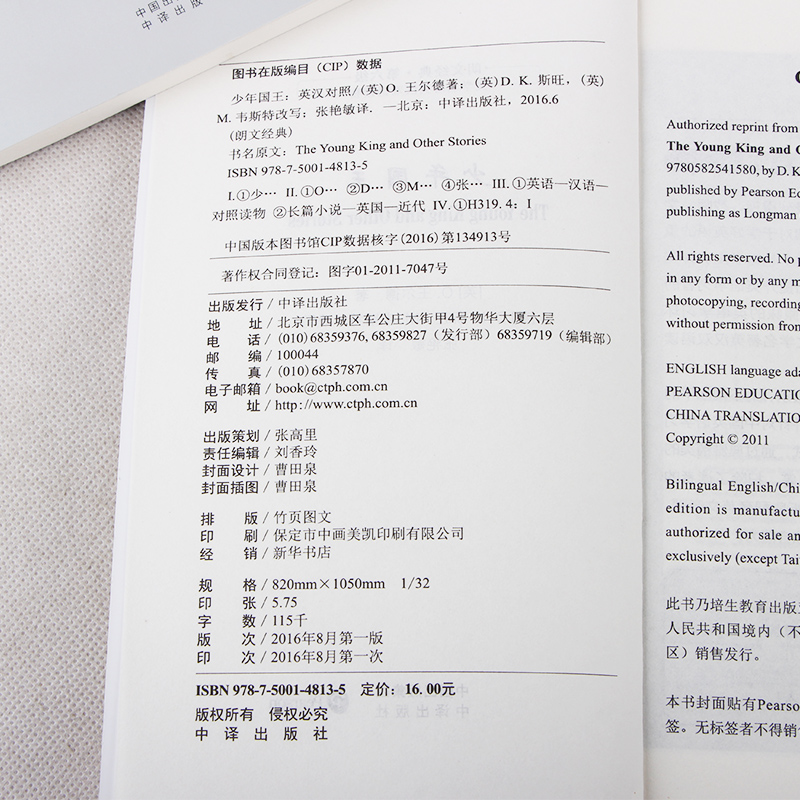 中国出
中译出版
图书在版编目（CIP）数据
少年国王：英汉对照/(英)O. 王尔德著；(英)D. K. 斯旺，(英)
M. 韦斯特改写；张艳敏译. —北京：中译出版社，2016.6
（朗文经典）
书名原文：The Young King and Other Stories
ISBN 978-7-5001-4813-5
Ⅰ.①少… Ⅱ.①O… ②D… ③M… ④张… Ⅲ.①英语—汉语—
对照读物 ②长篇小说—英国—近代 Ⅳ.①H319.4：Ⅰ
中国版本图书馆CIP数据核字(2016)第134913号
著作权合同登记：图字01-2011-7047号
出版发行 / 中译出版社
地 址 / 北京市西城区车公庄大街甲4号物华大厦六层
电 话 / (010) 68359376, 68359827（发行部）68359719（编辑部）
邮 编 / 100044
传 真 / (010) 68357870
电子邮箱 / book@ctph.com.cn
网 址 / http://www.ctph.com.cn
出版策划 / 张高里
责任编辑 / 刘香玲
封面设计 / 曹田泉
封面插图 / 曹田泉
排 版 / 竹页图文
印 刷 / 保定市中画美凯印刷有限公司
经 销 / 新华书店
规 格 / 820mm×1050mm 1/32
印 张 / 5.75
字 数 / 115千
版 次 / 2016年8月第一版
印 次 / 2016年8月第一次
ISBN 978-7-5001-4813-5 定价：16.00元
版权所有 侵权必究
中 译 出 版 社
Authorized reprint from
The Young King and O
9780582541580, by D. K
published by Pearson Ed
publishing as Longman
All rights reserved. No p
in any form or by any m
photocopying, recording
without permission from
ENGLISH language ada
PEARSON EDUCATIO
CHINA TRANSLATION
Copyright © 2011
Bilingual English/Chi
edition is manufactu
authorized for sale an
exclusively (except Tai
此书乃培生教育出版
人民共和国境内（不
区）销售发行。
本书封面贴有Pearso
签。无标签者不得销